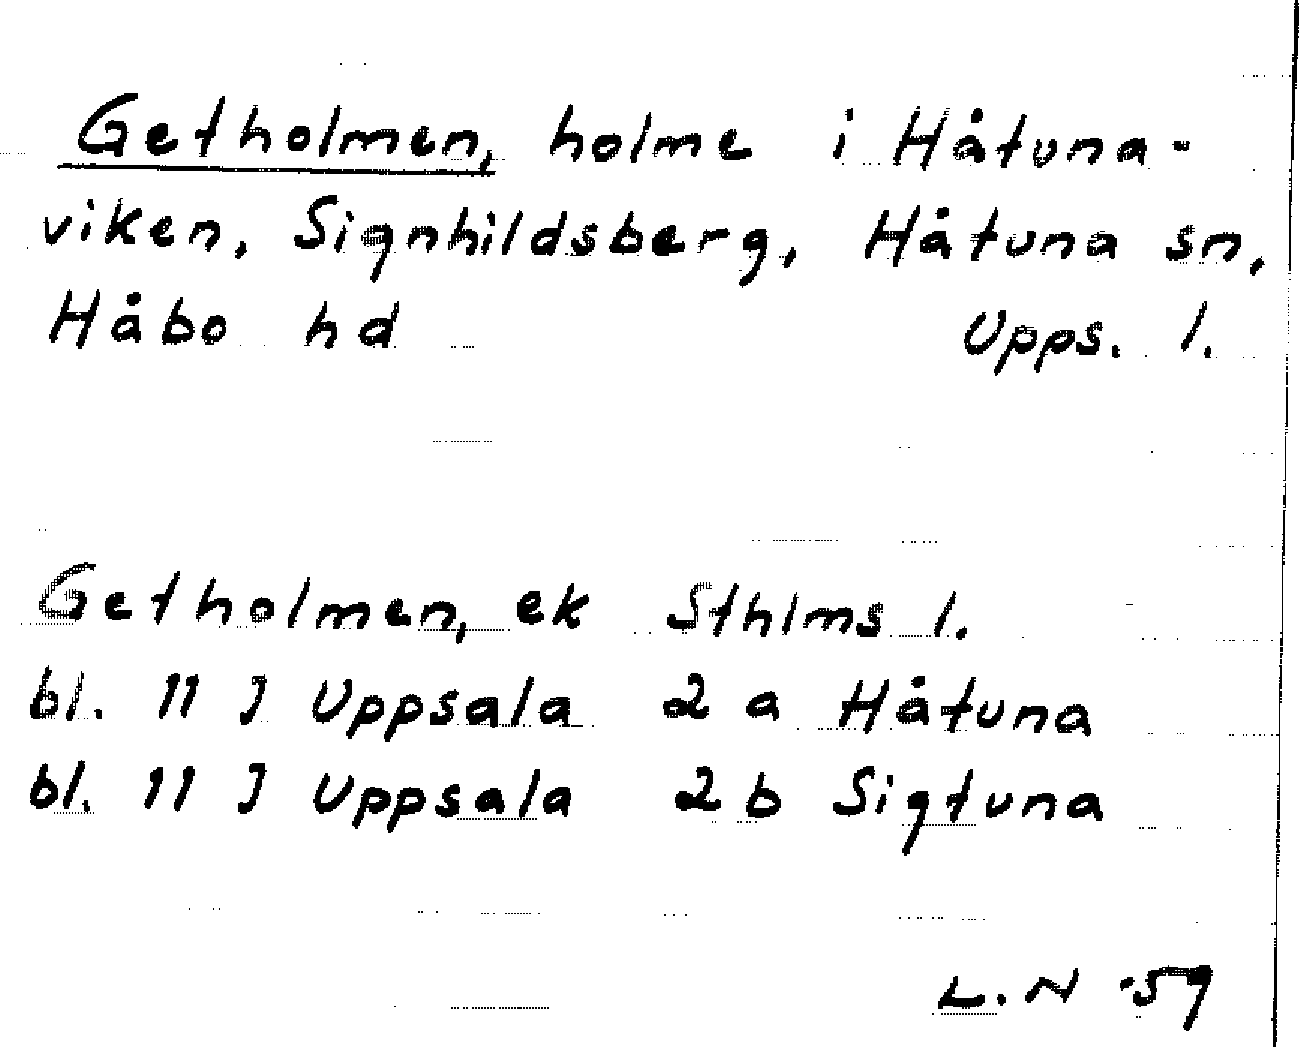 Getholmen, holme i Håtuna-
viken, Signhildsberg, Håtuna sn,
Håbo hd Upps. l.
Getholmen, ek Sthlms l.
bl. 11 J Uppsala 2 a Håtuna
bl. 11 J Uppsala 2 b Sigtuna
L.N -59